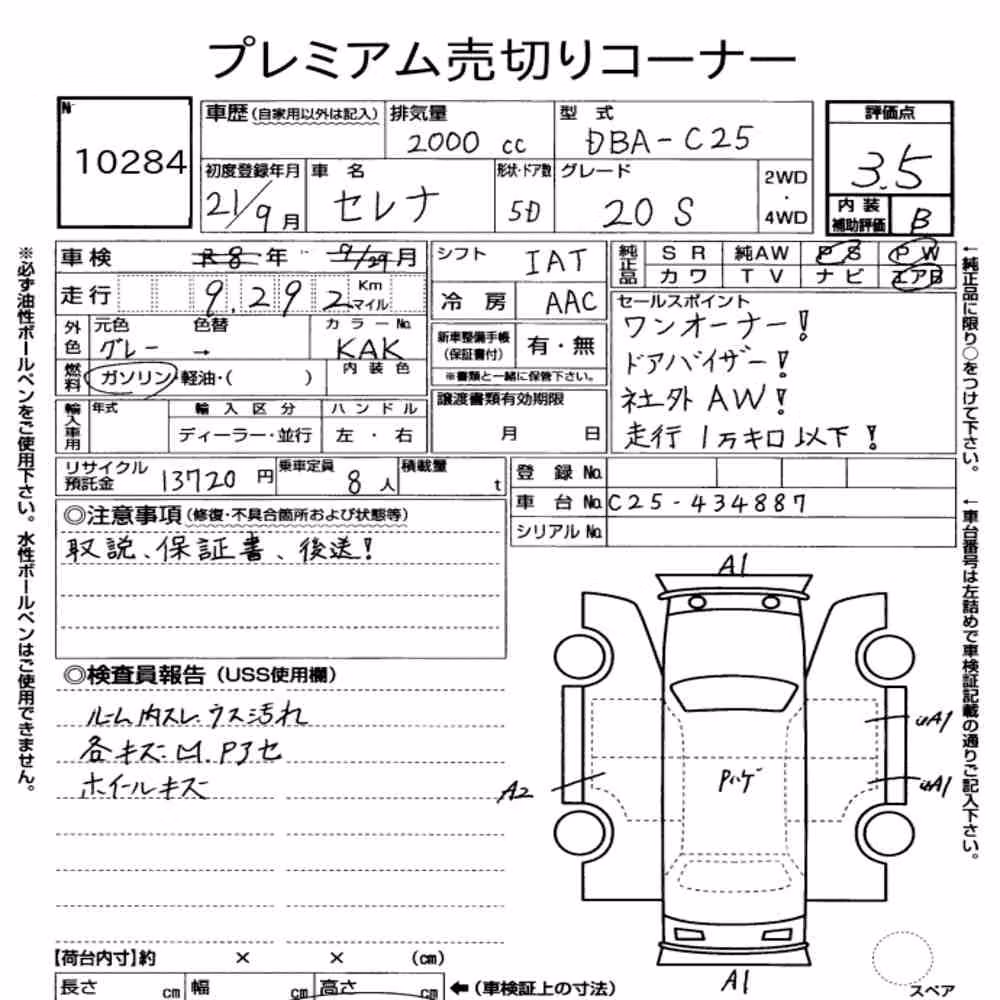 プレミアム売切りコーナー
№ 10284
車歴(自家用以外は記入) 排気量 2000 cc 型式 DBA-C25 評価点 3.5
初度登録年月 21/9月 車名 セレナ 形状・ドア数 5D グレード 20 S 2WD・4WD
内装補助評価 B
車検 R8年 9/29月 シフト IAT 純正品 SR 純AW PS PW
走行 9,292 Km マイル 冷房 AAC カワ TV ナビ エアB
外色 元色 グレー 色替 → カラーNo. KAK 新車整備手帳(保証書付) 有・無
※書類と一緒に保管下さい。
燃料 ガソリン・軽油・( ) 内装色
輸入車用 年式 輸入区分 ディーラー・並行 ハンドル 左・右
譲渡書類有効期限 月 日
セールスポイント
ワンオーナー!
ドアバイザー!
社外AW!
走行1万キロ以下!
リサイクル預託金 13720円 乗車定員 8人 積載量 t
登録No.
車台No. C25-434887
シリアルNo.
◎注意事項(修復・不具合箇所および状態等)
取説、保証書、後送!
◎検査員報告(USS使用欄)
ルーム内スレ ウス汚れ
各キズ・凹、Pアセ
ホイールキズ
A1
A1
A1
A2
Pハゲ
A1
【荷台内寸】約 × × (cm)
長さ cm 幅 cm 高さ cm ←(車検証上の寸法)
スペア
※必ず油性ボールペンをご使用下さい。水性ボールペンはご使用できません。
←純正品に限り○をつけて下さい。
←車台番号は左詰めで車検証記載の通りご記入下さい。